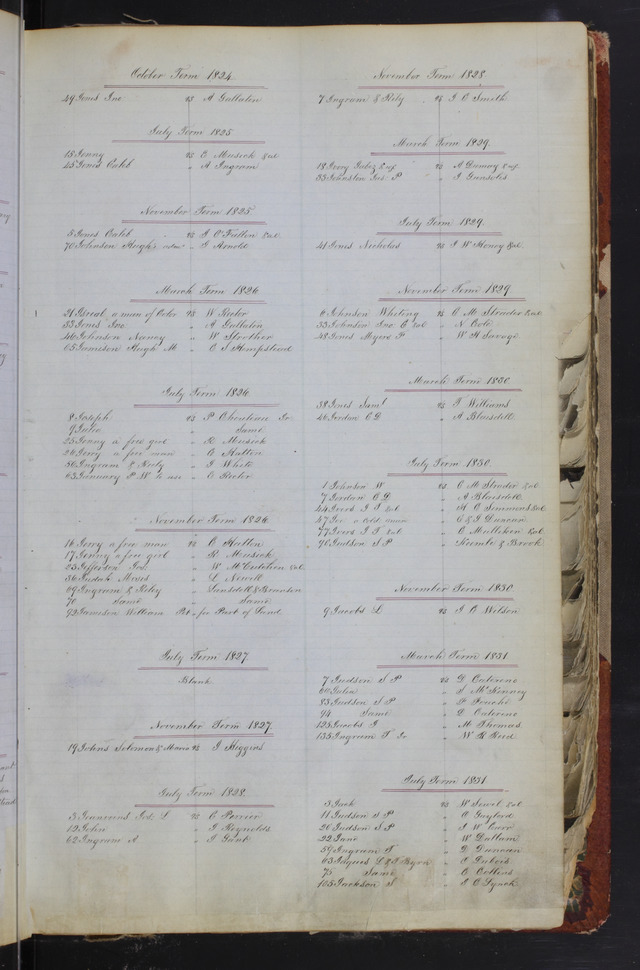 October Term 1824.
49 Jones Jno vs A Gallatin
July Term 1825
18 Jenny vs C Musick &al
45 Jones Caleb " A Ingram
November Term 1825
5 Jones Caleb vs J O'Fallon &al
70 Johnson Hugh's " J Arnold
March Term 1826
a man of Color vs W Rector
33 Jones Jno. " A Gallatin
46 Johnson Nancy " W Strother
65 Jameson Hugh M " C S Hempstead
July Term 1826
8 Joseph vs P Chouteau Jr
9 Julia " Same
25 Jenny a free girl " R Musick
26 Jerry a free man " C Hatton
56 Ingram & Reily " J White
63 January P W to use " E Rector
November Term 1826
14 Jerry a free man vs C Hatton
17 Jenny a free girl " R Musick
25 Jefferson Jos. " W McCutchen &al
36 Judah Moses " L Newell
69 Ingram & Riley " Lansdell &
78 Same " Same
92 Jameson William Pet. for Part of Land
July Term 1827
Blank
November Term 1827
19 Johns Solomon & Maria vs J Higgins
July Term 1828.
3 Jos L vs
12 John " J Reynolds
62 Ingram A " J
November Term 1828
7 Ingram & Rily vs J C Smith
March Term 1829
18 Jerry Gabez & wf vs A & wf
33 Johnston Jos. P " J Gonsolis
July Term 1829.
41 Jones Nicholas vs J W Honey &al
November Term 1829
6 Johnson Whiting vs C M Strader &al
33 Johnston Jno C &al " N Cole
48 Jones Myers P " W H Savage
March Term 1830
38 Jones Saml vs J Williams
46 Jordan C D " A Blaisdell
July Term 1830
1 Johnson W vs C M Strader &al
7 Jordan C D " A Blaisdell
44 J T &al " A C Simmons &al
47 Joe a cold man " C & J Duncan
77 J T &al " C Mullikin &al
90 Judson S P " & Brook
November Term 1830
9 Jacobs L " J C Wilson
March Term 1831
7 Judson S P vs D
60 Julia " S McKinney
83 Judson S P " F Fouche
94 Same " D
125 Jacobs J " M Thomas
135 Ingram T Jr " W K Reed
July Term 1831
3 Jack vs W Jewel &al
11 Judson S P " C Gaylord
26 Judson S P " J W Carr
29 Jane " W Dallam
59 Ingram T " D Duncan
63 Jaynes L & J Byon " A Dubois
75 Same " C Collins
105 Jackson S " J C Lynch